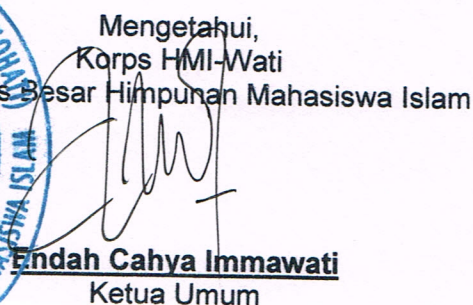 Mengetahui,
Korps HMI-Wati
s Besar Himpunan Mahasiswa Islam
ISWA ISLAM
Endah Cahya Immawati
Ketua Umum